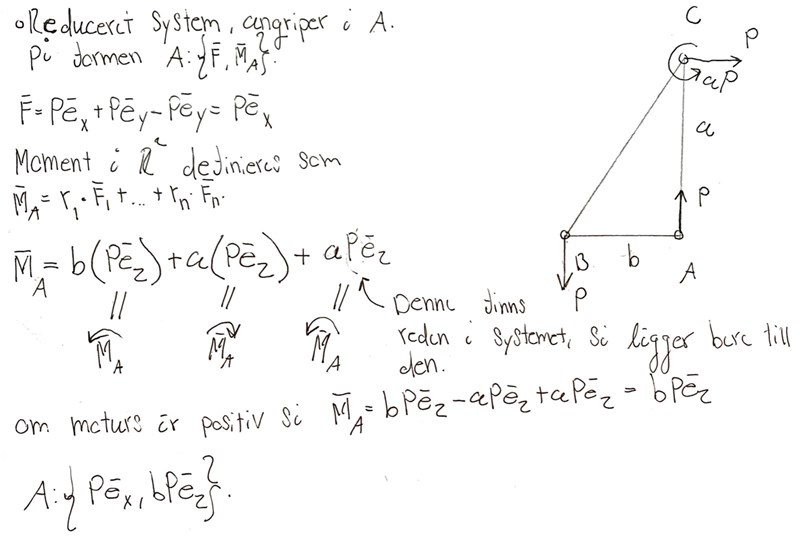 ○Reducerat System, angriper i A.
På formen A:{F̄, M̄_A}.
F̄=Pē_x+Pē_y−Pē_y=Pē_x
Moment i ℝ² definieras som
M̄_A=r_1·F̄_1+...+r_n·F̄_n.
M̄_A=b(Pē_z)+a(Pē_z)+aPē_z
|| || ||
M̄_A M̄_A M̄_A
Denna finns
redan i systemet, så lägger bara till
den.
om moturs är positiv så M̄_A=bPē_z−aPē_z+aPē_z=bPē_z
A:{Pē_x, bPē_z}.
C
P
aP
a
P
B b A
P